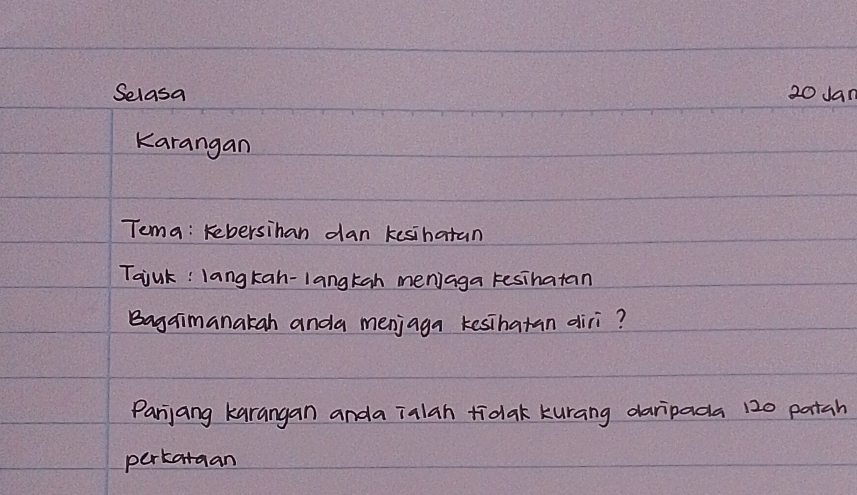 Selasa 20 Jan
Karangan
Tema: Kebersihan dan kesihatan
Tajuk: langkah-langkah menjaga kesihatan
Bagaimanakah anda menjaga kesihatan diri?
Panjang karangan anda ialah tidak kurang daripada 120 patah
perkataan